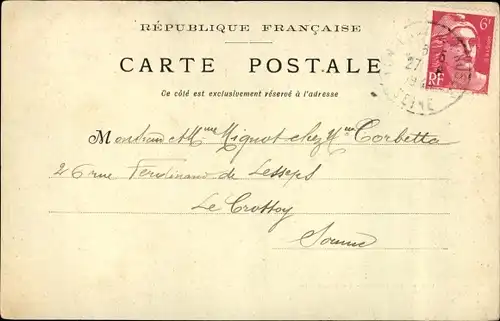 RÉPUBLIQUE FRANÇAISE
CARTE POSTALE
Ce côté est exclusivement réservé à l'adresse
6F
RF
SEINE
27
Monsieur et Mme Mignot chez Mme Corbetta
26 rue Ferdinand de Lesseps
Le Crottoy
Somme